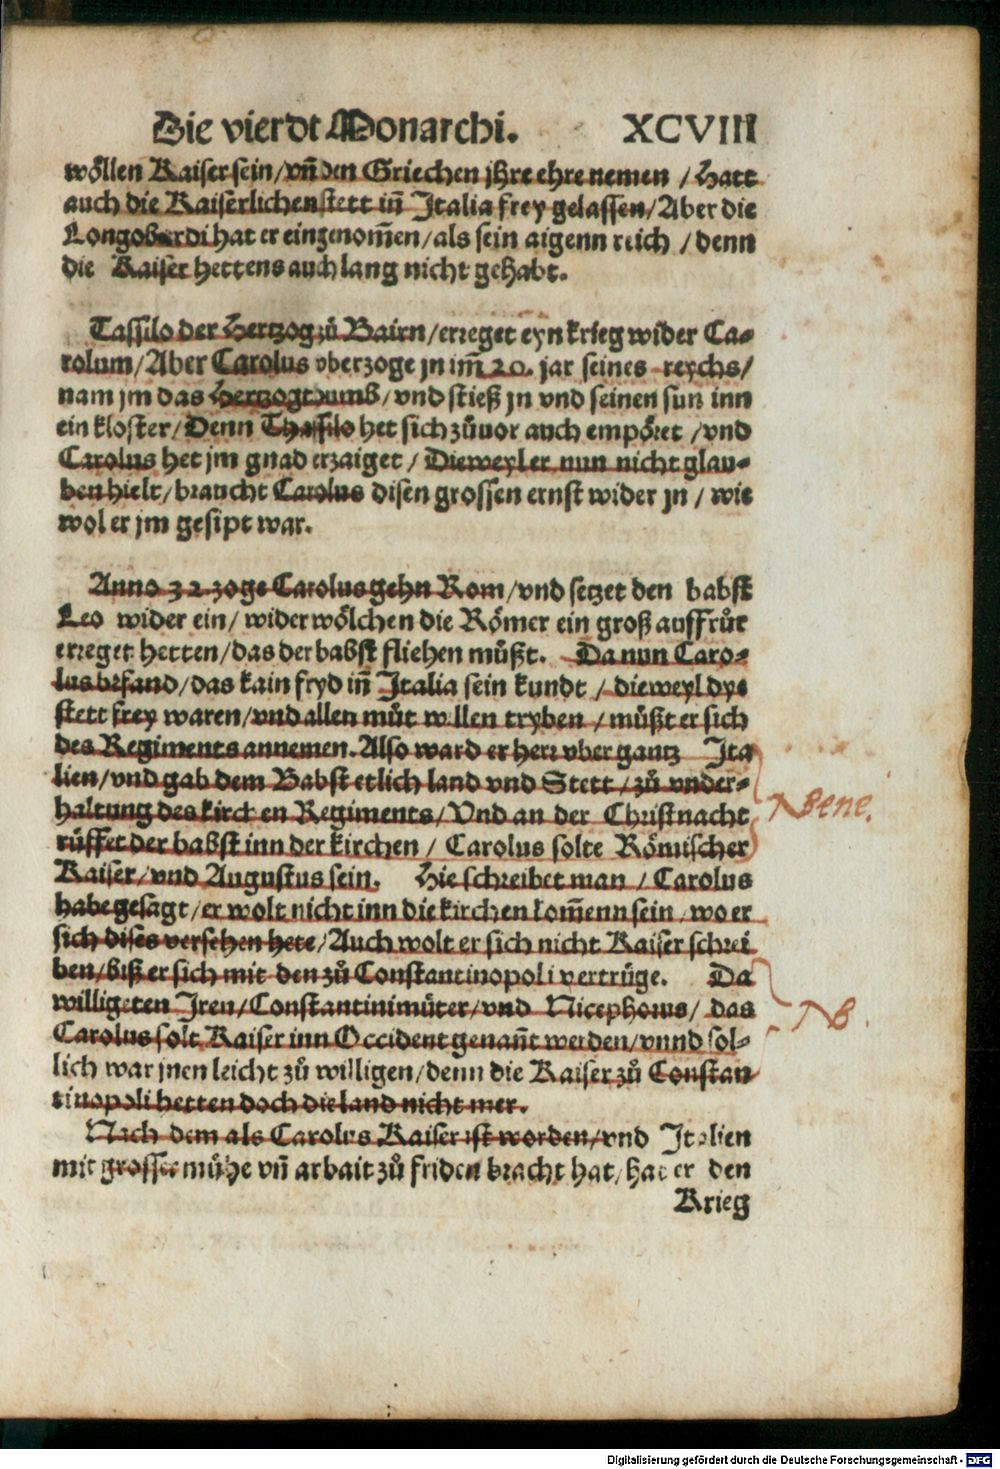 Die vierdt Monarchi. XCVIII
wöllen Kaiser sein/vñ den Griechen jhre ehre nemen / Hatt
auch die Kaiserlichen stett in̄ Italia frey gelassen/Aber die
Longobardi hat er eingenom̄en/als sein aigenn reich /denn
die Kaiser hettens auch lang nicht gehabt.
Tassilo der Hertzog zů Bairn/erreget eyn krieg wider Ca-
rolum/Aber Carolus vberzoge jn im̄ 20. jar seines reychs/
nam jm das Hertzogthumb/vnd stieß jn vnd seinen sun inn
ein kloster/Denn Thassilo het sich zůuor auch empöret /vnd
Carolus het jm gnad erzaiget / Dieweyl er nun nicht glau-
ben hielt/braucht Carolus disen grossen ernst wider jn / wie
wol er jm gesipt war.
Anno 32 zoge Carolus gehn Rom/vnd setzet den babst
Leo wider ein/ wider wölchen die Römer ein groß auffrůr
erreget hetten/das der babst fliehen můßt. Da nun Caro-
lus befand/das kain fryd in̄ Italia sein kundt / dieweyl dye
stett frey waren/vnd allen můt willen tryben /můßt er sich
des Regiments annemen. Also ward er herr vber gantz Ita
lien/vnd gab dem Babst etlich land vnd Stett / zů vnder-
haltung des kirchen Regiments/Vnd an der Christnacht
rüffet der babst inn der kirchen / Carolus solte Römischer
Kaiser/vnd Augustus sein. Hie schreibet man / Carolus
habe gesagt/er wolt nicht inn die kirchen kom̄enn sein, wo er
sich dises versehen hete/Auch wolt er sich nicht Kaiser schrei
ben/biß er sich mit den zů Constantinopoli vertrüge. Da
willigeten Iren/Constantini můter/vnd Nicephorus/ das
Carolus solt Kaiser inn Occident genañt werden/vnnd sol-
lich war jnen leicht zů willigen/denn die Kaiser zů Constan
tinopoli hetten doch die land nicht mer.
Nach dem als Carolus Kaiser ist worden/vnd Italien
mit grosser mühe vñ arbait zů friden bracht hat/hat er den
Krieg
N Bene.
NB.
Digitalisierung gefördert durch die Deutsche Forschungsgemeinschaft - DFG